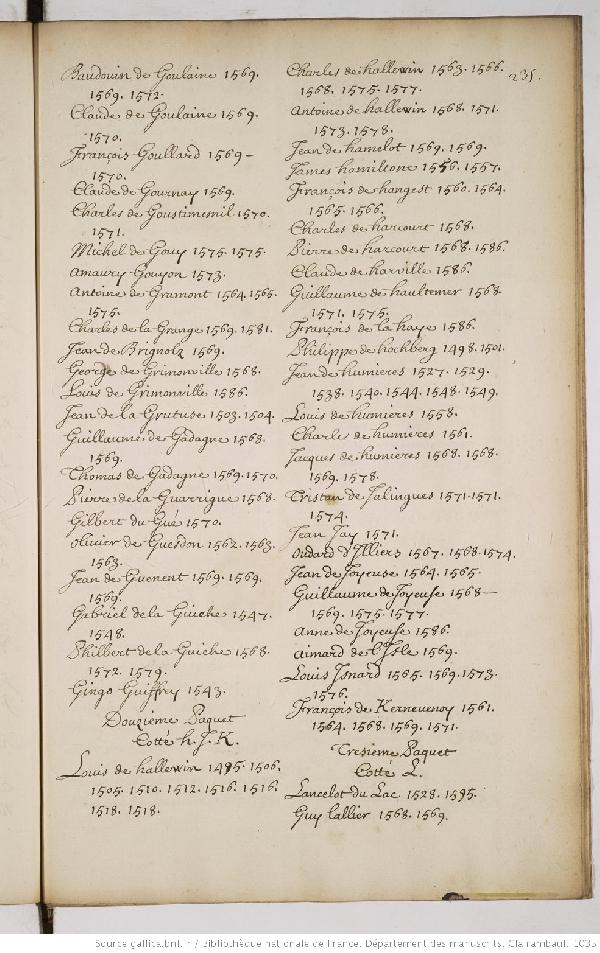 235.
Baudouin de Goulaine 1569.
1569. 1572.
Claude de Goulaine 1569.
1570.
François Goullard 1569 –
1570.
Claude de Gournay 1569.
Charles de Goustimesnil 1570.
1571.
Michel de Gouy 1575. 1575.
Amaury Gouyon 1573.
Antoine de Gramont 1564. 1565.
1575.
Charles de la Grange 1569. 1581.
Jean de Brignolz 1569.
George de Grimonville 1568.
Louis de Grimonville 1586.
Jean de la Grutuse 1503. 1504.
Guillaume de Gadagne 1568.
1569.
Thomas de Gadagne 1569. 1570.
Pierre de la Guarrigue 1568.
Gilbert du Gué 1570.
Olivier de Guesdon 1562. 1563.
1563.
Jean de Guenent 1569. 1569.
1569.
Gabriel de la Guiche 1547.
1548.
Philbert de la Guiche 1568.
1572. 1579.
Guigo Guiffrey 1543.
Douzieme Paquet
Cotté h. J. K.
Louis de hallewin 1495. 1506.
1505. 1510. 1512. 1516. 1516.
1518. 1518.
Charles de hallewin 1563. 1566.
1568. 1575. 1577.
Antoine de hallewin 1568. 1571.
1573. 1578.
Jean de hamelot 1569. 1569.
James hamiltone 1556. 1557.
François de hangest 1560. 1564.
1565. 1566.
Charles de harcourt 1568.
Pierre de harcourt 1568. 1586.
Claude de harville 1586.
Guillaume de haultemer 1568.
1571. 1575.
François de la haye 1586.
Philippe de hochberg 1498. 1501.
Jean de humieres 1527. 1529.
1538. 1540. 1544. 1548. 1549.
Louis de humieres 1558.
Charles de humieres 1561.
Jacques de humieres 1568. 1568.
1569. 1578.
Tristan de Jalingues 1571. 1571.
1574.
Jean Jay 1571.
Oudard d'Illiers 1567. 1568. 1574.
Jean de Joyeuse 1564. 1565.
Guillaume de Joyeuse 1568 –
1569. 1575. 1577.
Anne de Joyeuse 1586.
Aimard de l'Isle 1569.
Louis Isnard 1565. 1569. 1573.
1576.
François de Kernevenoy 1561.
1564. 1568. 1569. 1571.
Tresieme Paquet
Cotté L.
Lancelot du Lac 1528. 1595.
Guy Lallier 1568. 1569.
Source gallica.bnf.fr / Bibliothèque nationale de France. Département des manuscrits. Clairambault. 1035